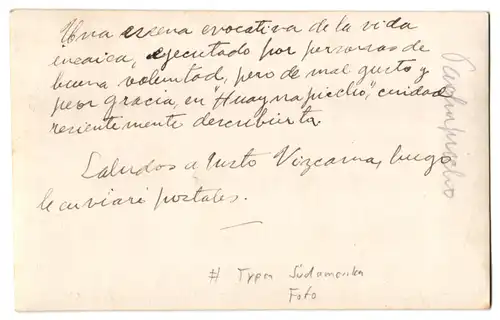 Una escena evocativa de la vida
incaica, ejecutado por personas de
buena voluntad, pero de mal gusto y
peor gracia, en "Huayna picchu", ciudad
resientimente describierta.
Saludos a Justo Vizcarra, luego
le enviaré postales.
# Typen Südamerika
Foto